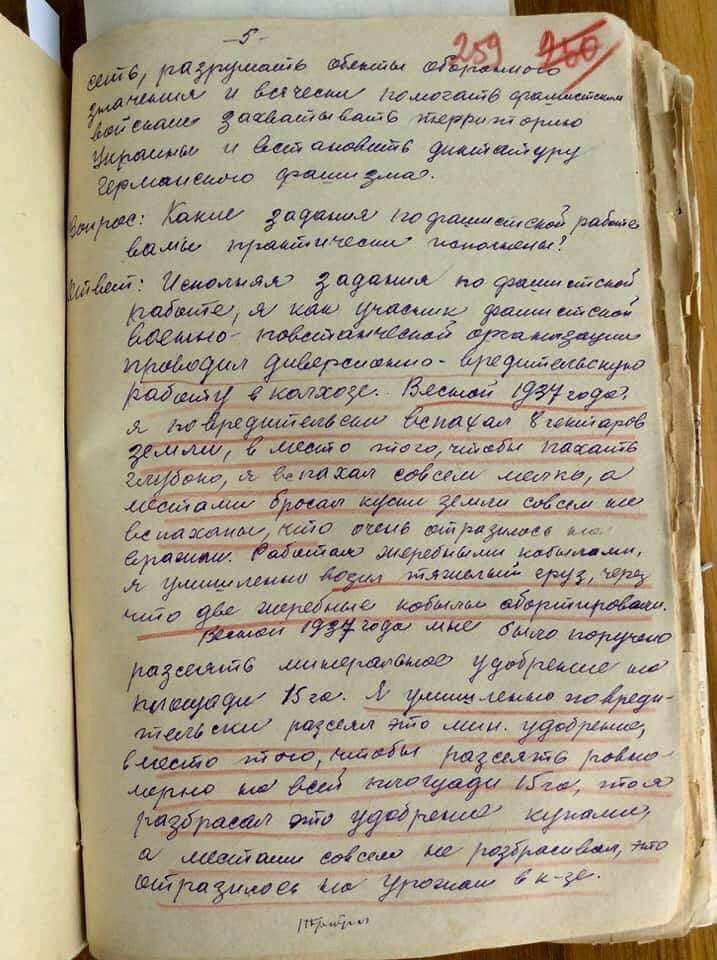 -5-
259 260
сеть, разрушать обекты оборонного
значения и всячески помогать фашистским
войскам захватывать территорию
Украины и встановить диктатуру
Германского фашизма.
Вопрос: Какие задания по фашистской работе
вами практически исполнены?
Ответ: Исполняя задания по фашистской
работе, я как участник фашистской
военно-повстанческой организации
проводил диверсионно-вредительскую
работу в колхозе. Весной 1937 года.
я по вредительски вспахал 8 гектаров
земли, в место того, чтобы пахать
глубоко, я вспахал совсем мелко, а
местами бросал куски земли совсем не
вспаханы, что очень отразилось на
уражаи. Работая жеребными кобылами,
я умишленно возил тяжелый груз, через
что две жеребные кобылы обортировали.
Весной 1937 года мне было поручено
рассеять минеральное удобрение на
площади 15 га. Я умишленно по вреди-
тельски рассеял это мин. удобрение,
вместо того, чтобы рассеять ровно-
мерно на всей площади 15 га, то я
разбрасал это удобрение кучами,
а местами совсем не розбрасивал, это
отразилось на урожаи в к-зе.